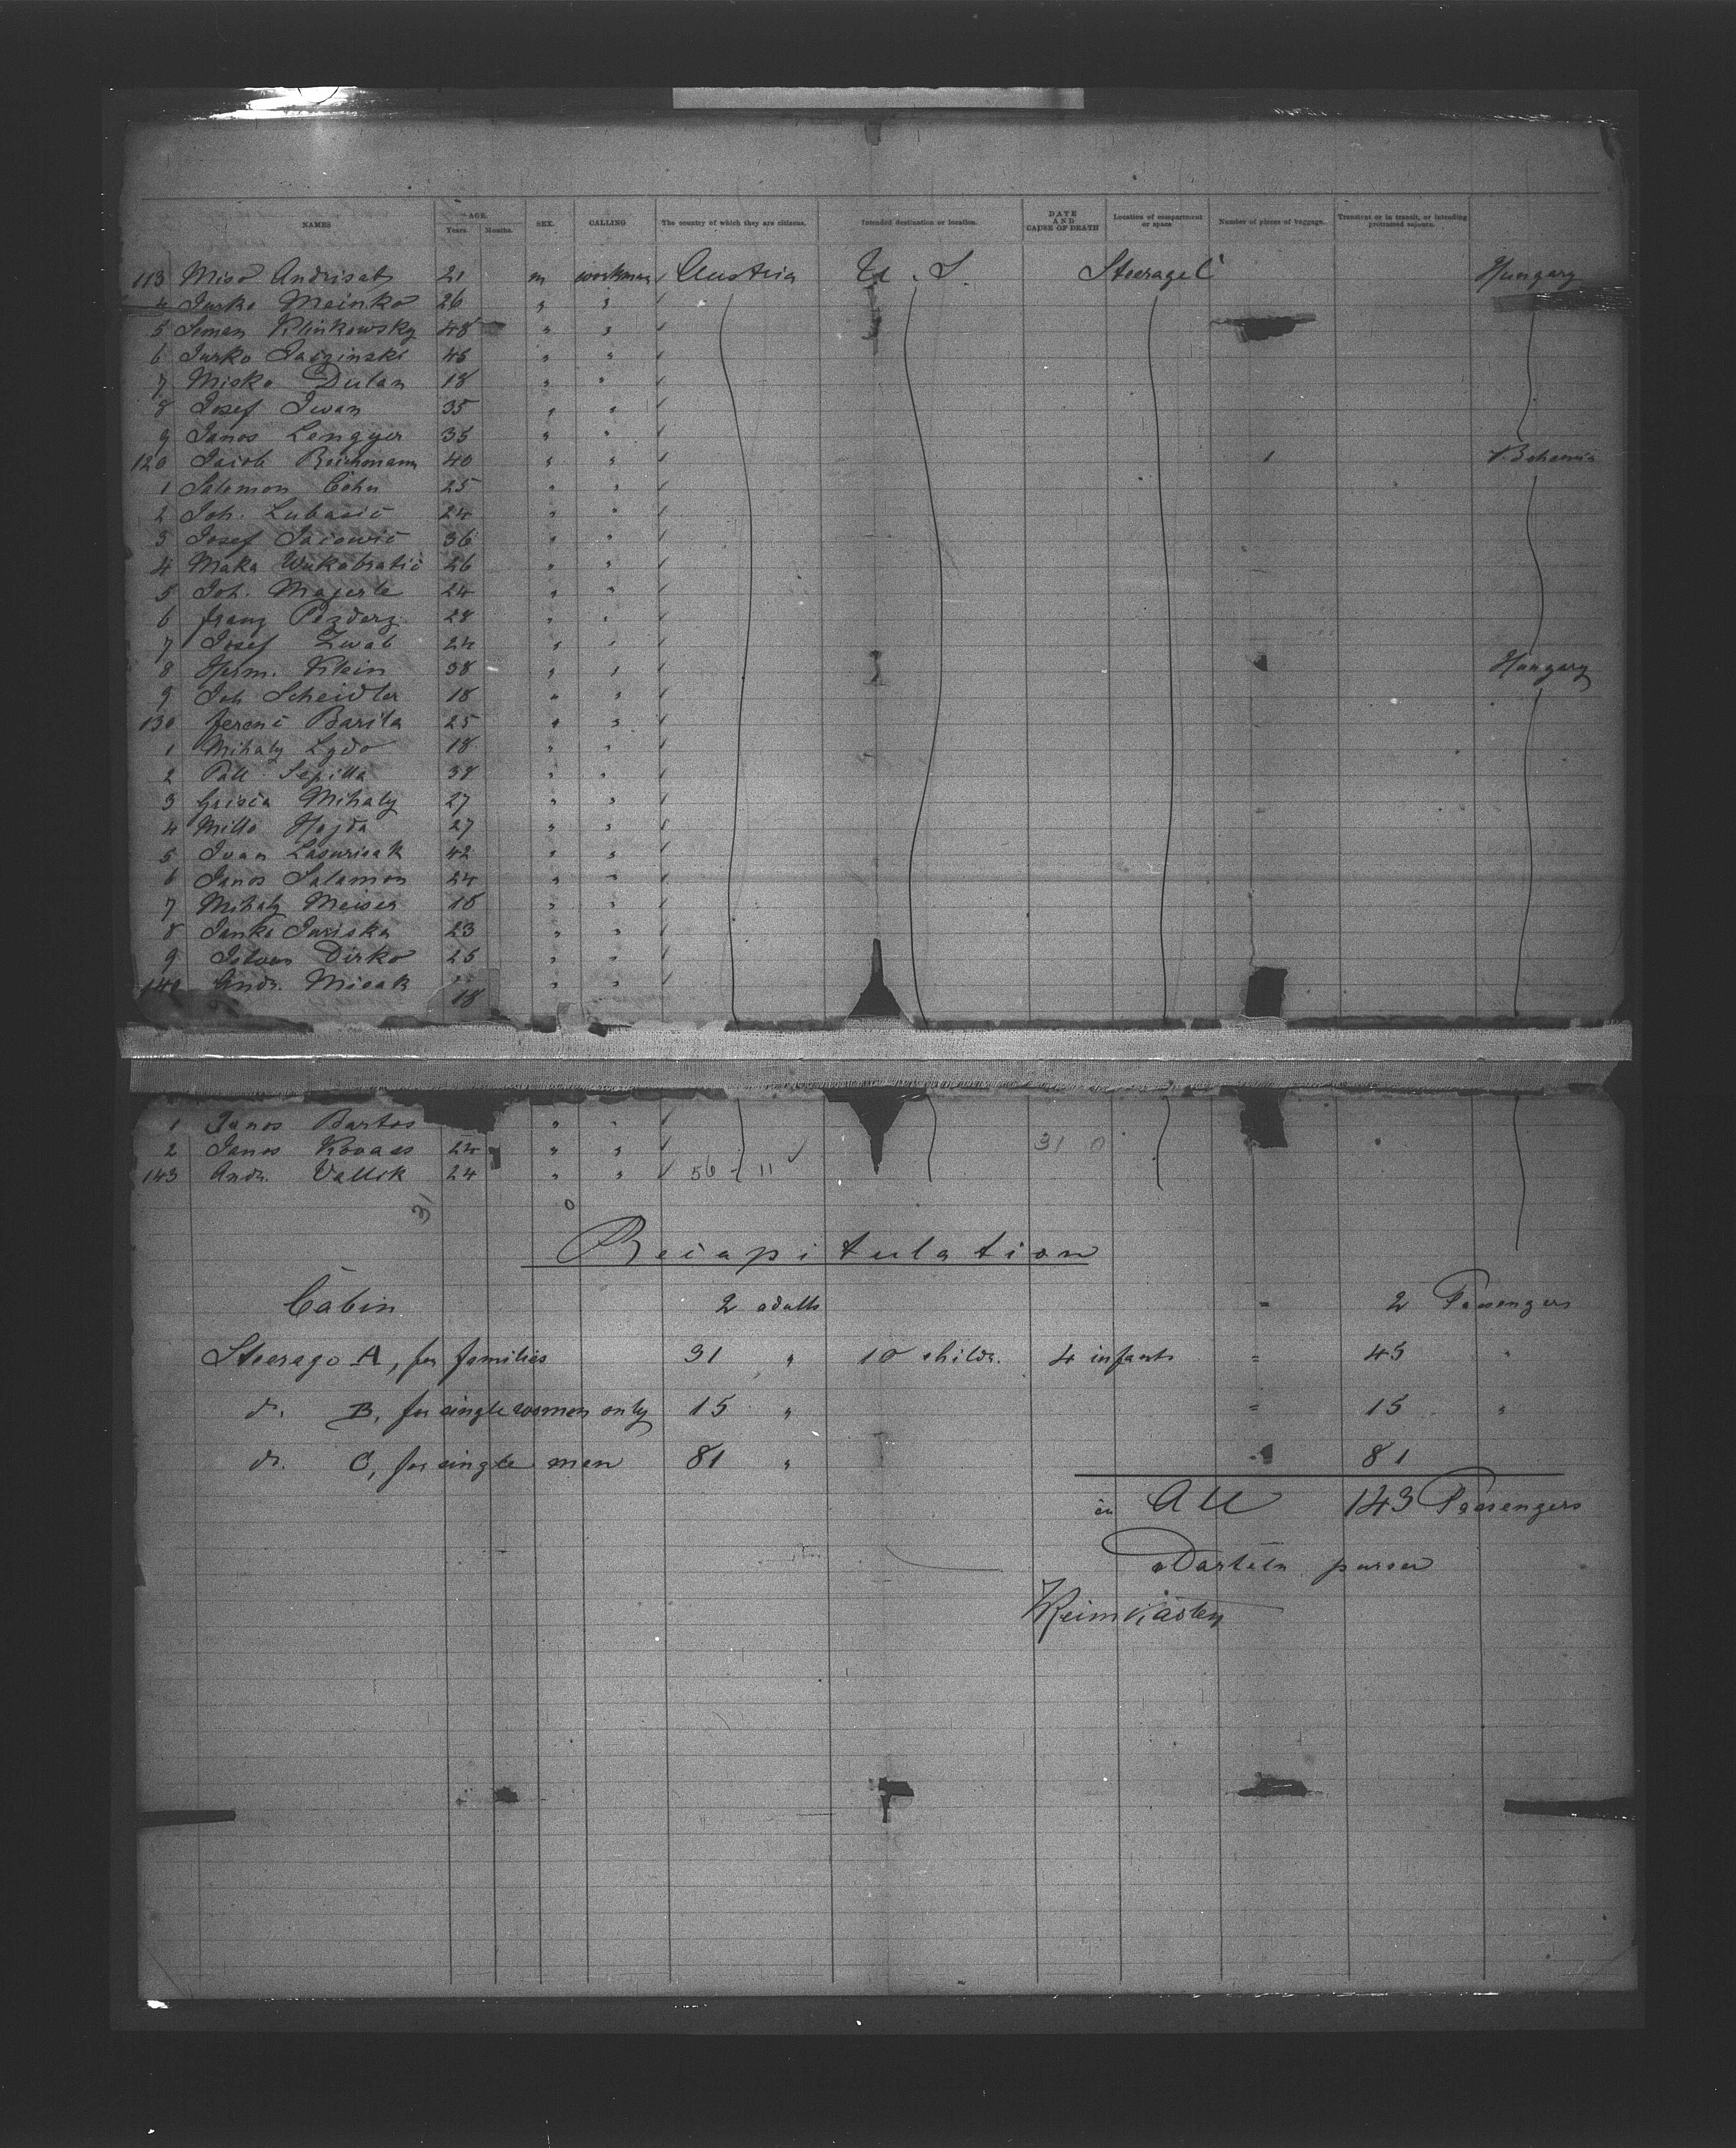 NAMES AGE. Years. Months. SEX. CALLING The country of which they are citizens. Intended destination or location. DATE AND CAUSE OF DEATH Location of compartment or space Number of pieces of baggage. Transient or in transit, or intending protracted sojourn.
113 Miso 21 m workman Austria U. S. Steerage C Hungary
4 Jurko Meinko 26 " "
5 Seman Klinkowsky 48 " "
6 Jurko 45 " "
7 Misko Dulan 18 " "
8 Josef Iwan 35 " "
9 Janos Lengyer 35 " "
120 Jacob Reichmann 40 " " 1 Bohemia
1 Salomon Cohn 25 " "
2 Joh. Lubasic 24 " "
3 Josef Jacowic 36 " "
4 Maka Wukabratic 26 " "
5 Joh. Majerle 24 " "
6 Franz Pezderz 28 " "
7 Josef Zwab 24 " "
8 Herm. Klein 38 " " Hungary
9 Joh Scheidler 18 " "
130 Ferenc Barila 25 " "
1 Mihaly Lydo 18 " "
2 Pall Sepilla 38 " "
3 Mihaly 27 " "
4 Millo Hajda 27 " "
5 Ivan Lasurisak 42 " "
6 Janos Salamon 24 " "
7 Mihaly Meiser 18 " "
8 Janko Juriska 23 " "
9 Istvan Dirko 25 " "
140 Andr. Micak 18 " "
1 Janos Bartos " "
2 Janos Kovacs 24 " " 31 0
143 Andr. Vallik 24 " " 56 - 11
31 0
Recapitulation
Cabin 2 adults = 2 Passengers
Steerage A, for families 31 " 10 childr. 4 infants = 45 "
do. B, for single women only 15 " = 15 "
do. C, for single men 81 " 81
in All 143 Passengers
purser